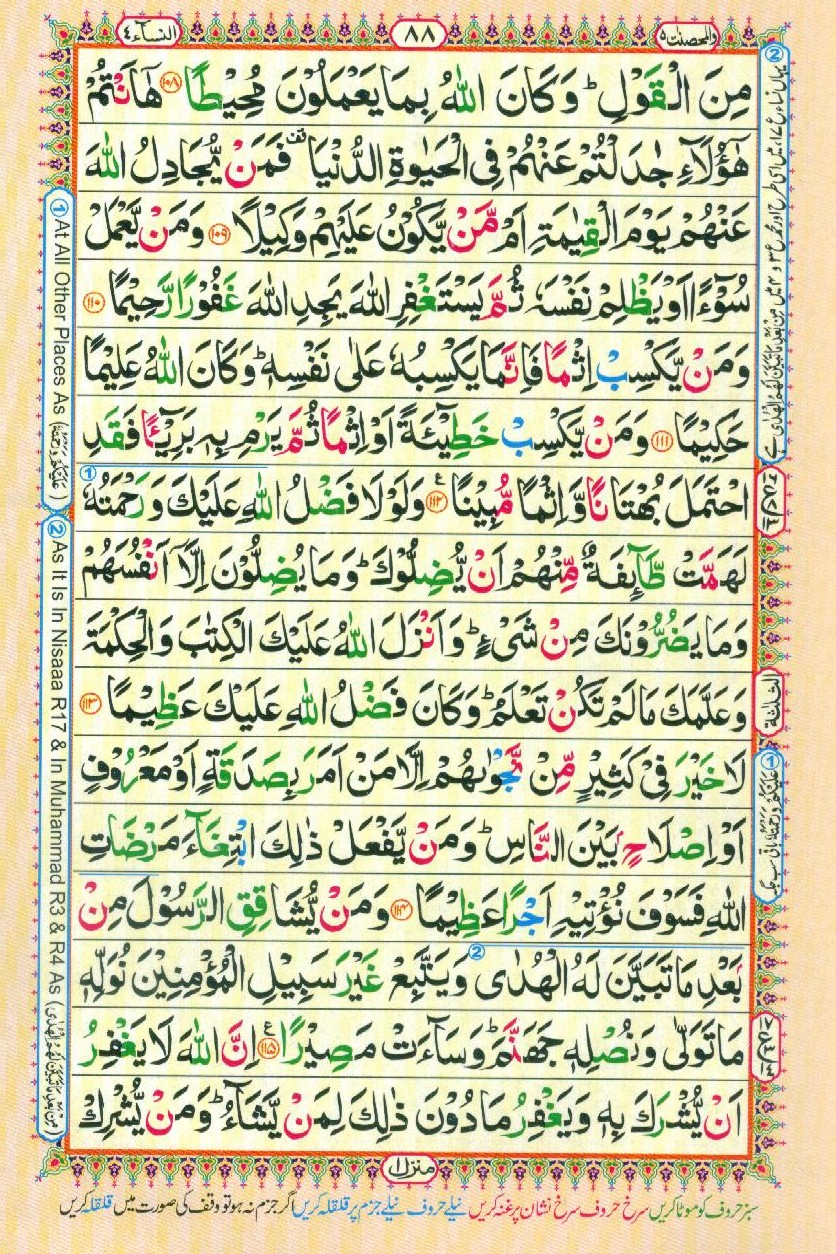 والمحصنت ٥
٨٨
النسآء ٤
مِنَ الْقَوْلِ ؕ وَكَانَ اللّٰهُ بِمَا يَعْمَلُوْنَ مُحِيْطًا ﴿۱۰۸﴾ هٰۤاَنْتُمْ
هٰۤؤُلَآءِ جٰدَلْتُمْ عَنْهُمْ فِى الْحَيٰوةِ الدُّنْيَا ۫ فَمَنْ يُّجَادِلُ اللّٰهَ
عَنْهُمْ يَوْمَ الْقِيٰمَةِ اَمْ مَّنْ يَّكُوْنُ عَلَيْهِمْ وَكِيْلًا ﴿۱۰۹﴾ وَمَنْ يَّعْمَلْ
سُوْٓءًا اَوْ يَظْلِمْ نَفْسَهٗ ثُمَّ يَسْتَغْفِرِ اللّٰهَ يَجِدِ اللّٰهَ غَفُوْرًا رَّحِيْمًا ﴿۱۱۰﴾
وَمَنْ يَّكْسِبْ اِثْمًا فَاِنَّمَا يَكْسِبُهٗ عَلٰى نَفْسِهٖ ؕ وَكَانَ اللّٰهُ عَلِيْمًا
حَكِيْمًا ﴿۱۱۱﴾ وَمَنْ يَّكْسِبْ خَطِيْٓئَةً اَوْ اِثْمًا ثُمَّ يَرْمِ بِهٖ بَرِيْٓئًا فَقَدِ
احْتَمَلَ بُهْتَانًا وَّاِثْمًا مُّبِيْنًا ﴿۱۱۲﴾ ع وَلَوْلَا فَضْلُ اللّٰهِ عَلَيْكَ وَرَحْمَتُهٗ ①
لَهَمَّتْ طَّآئِفَةٌ مِّنْهُمْ اَنْ يُّضِلُّوْكَ ؕ وَمَا يُضِلُّوْنَ اِلَّاۤ اَنْفُسَهُمْ
وَمَا يَضُرُّوْنَكَ مِنْ شَىْءٍ ؕ وَاَنْزَلَ اللّٰهُ عَلَيْكَ الْكِتٰبَ وَالْحِكْمَةَ
وَعَلَّمَكَ مَا لَمْ تَكُنْ تَعْلَمُ ؕ وَكَانَ فَضْلُ اللّٰهِ عَلَيْكَ عَظِيْمًا ﴿۱۱۳﴾
لَا خَيْرَ فِىْ كَثِيْرٍ مِّنْ نَّجْوٰىهُمْ اِلَّا مَنْ اَمَرَ بِصَدَقَةٍ اَوْ مَعْرُوْفٍ
اَوْ اِصْلَاحٍۭ بَيْنَ النَّاسِ ؕ وَمَنْ يَّفْعَلْ ذٰلِكَ ابْتِغَآءَ مَرْضَاتِ
اللّٰهِ فَسَوْفَ نُؤْتِيْهِ اَجْرًا عَظِيْمًا ﴿۱۱۴﴾ وَمَنْ يُّشَاقِقِ الرَّسُوْلَ مِنْۢ
بَعْدِ مَا تَبَيَّنَ لَهُ الْهُدٰى ② وَيَتَّبِعْ غَيْرَ سَبِيْلِ الْمُؤْمِنِيْنَ نُوَلِّهٖ
مَا تَوَلّٰى وَنُصْلِهٖ جَهَنَّمَ ؕ وَسَآءَتْ مَصِيْرًا ﴿۱۱۵﴾ ع اِنَّ اللّٰهَ لَا يَغْفِرُ
اَنْ يُّشْرَكَ بِهٖ وَيَغْفِرُ مَا دُوْنَ ذٰلِكَ لِمَنْ يَّشَآءُ ؕ وَمَنْ يُّشْرِكْ
الثلثة
① At All Other Places As (عَلَيْكُمْ وَرَحْمَتُهٗ)
② As It Is In Nisaaa R17 & In Muhammad R3 & R4 As (مِنْۢ بَعْدِ مَا تَبَيَّنَ لَهُمُ الْهُدٰى)
① عَلَيْكُمْ وَرَحْمَتُهٗ باقی سب جگہ
منزل ١
سبز حروف کو موٹا کریں سرخ حروف سرخ نشان پر غنہ کریں نیلے حروف نیلے جزم پر قلقلہ کریں اگر جزم نہ ہو تو وقف کی صورت میں قلقلہ کریں